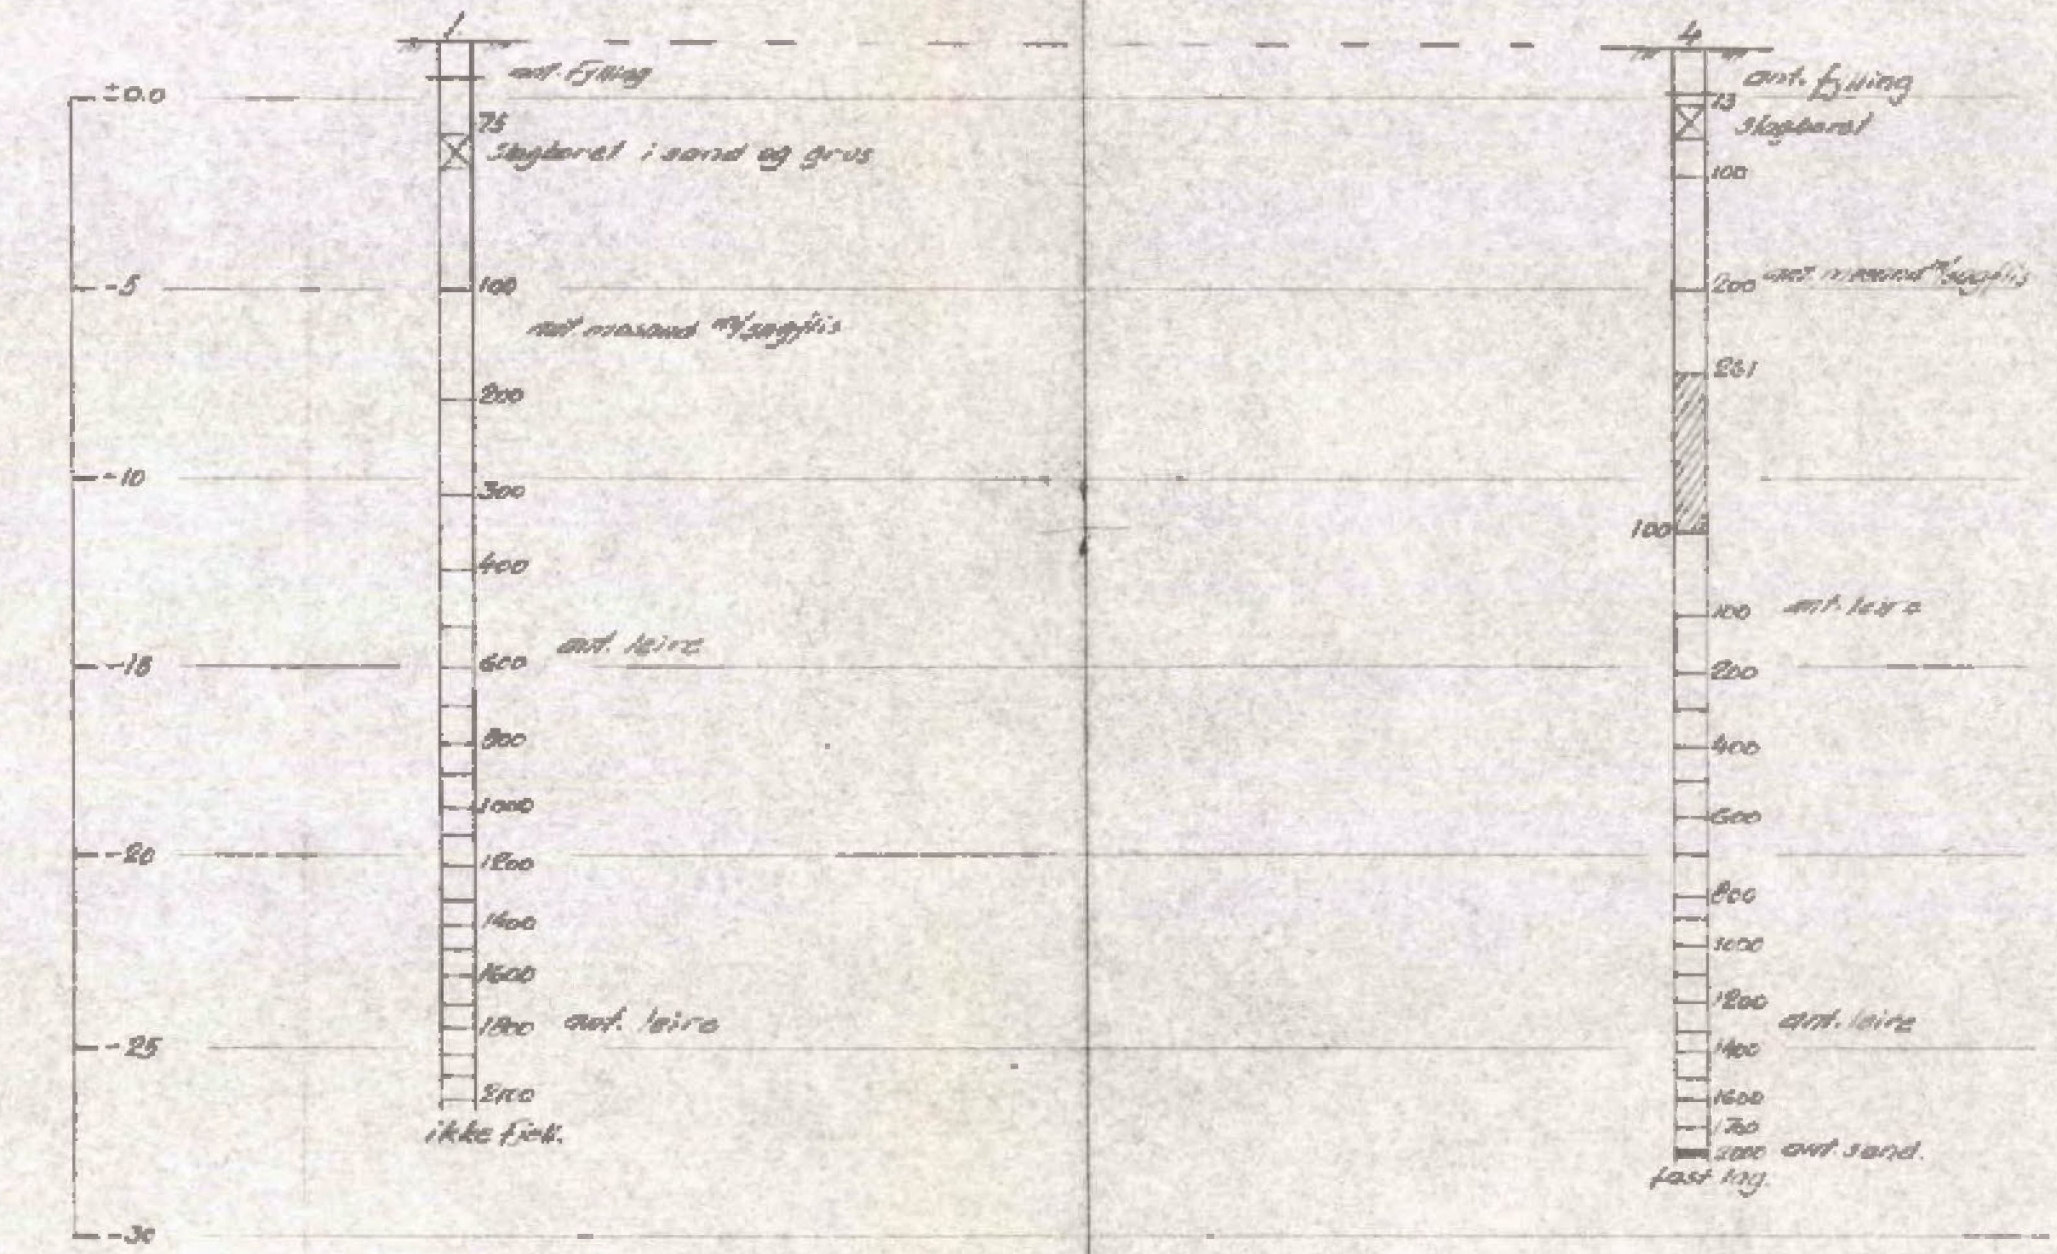 ±0.0
-5
-10
-15
-20
-25
-30
1
ant. fylling
75
Slagboret i sand og grus
100
ant mosand m/sagflis
200
300
400
ant. leire
600
800
1000
1200
1400
1600
1800 ant. leire
2100
ikke fjell.
4
ant. fylling
13
slagboret
100
200 ant mosand m/sagflis
231
100
100 ant. leire
200
400
600
800
1000
1200
ant. leire
1400
1600
1700
2000 ant. sand.
fast lag.